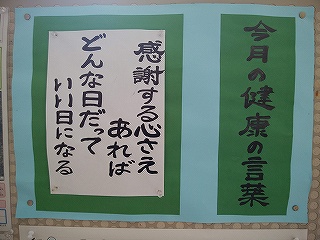 今月の健康の言葉
感謝する心さえ
あれば
どんな日だって
いい日になる